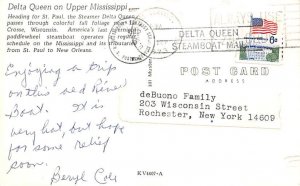 Delta Queen on Upper Mississippi
Heading for St. Paul, the Steamer Delta Queen
steams through colorful fall foliage near
Crosse, Wisconsin. America's last
paddlewheel steamboat operates
schedule on the Mississippi and its
from St. Paul to New Orleans
DELTA QUEEN
STEAMBOAT MAIL
6c
POST CARD
ADDRESS
deBuono Family
203 Wisconsin Street
Rochester, New York 14609
Enjoying a trip
on this old River
Boat. It is
very hot, but hope
for some relief
soon.
Beryl Cole
KV4407-A